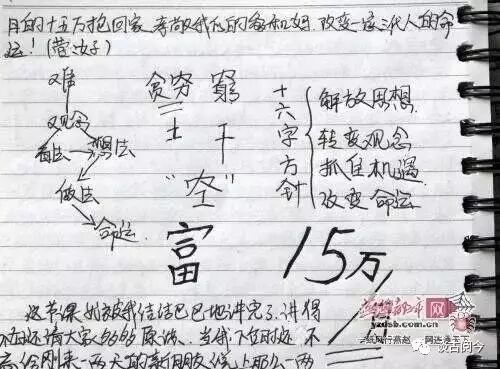 目的十五万抱回家，孝敬我们的爸和妈，改变一家三代人的命
运！(营边子)
难
观念
看法 想法
做法
命运
贪穷 窮
土 干
"空"
富
十六字方针
解放思想
转变观念
抓住机遇
改变命运
15万
这节课刘被我结结巴巴地讲完了，讲得
不好还请大家多多原谅。当你下位时还不
给刚来一两天的新朋友说上那么一两
燕赵都市网
yzdsb.com.cn
谈古阅今